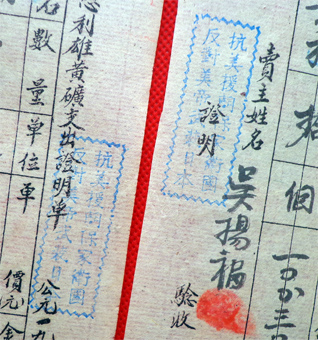 拾個
賣主姓名
吳揚福
抗美援朝保家衛國
反對美帝武裝日本
證明
驗收
抗美援朝保家衛國
反對美帝武裝日本
利雄黃礦支出證明單
公元一九
名數量單位單價(元)金